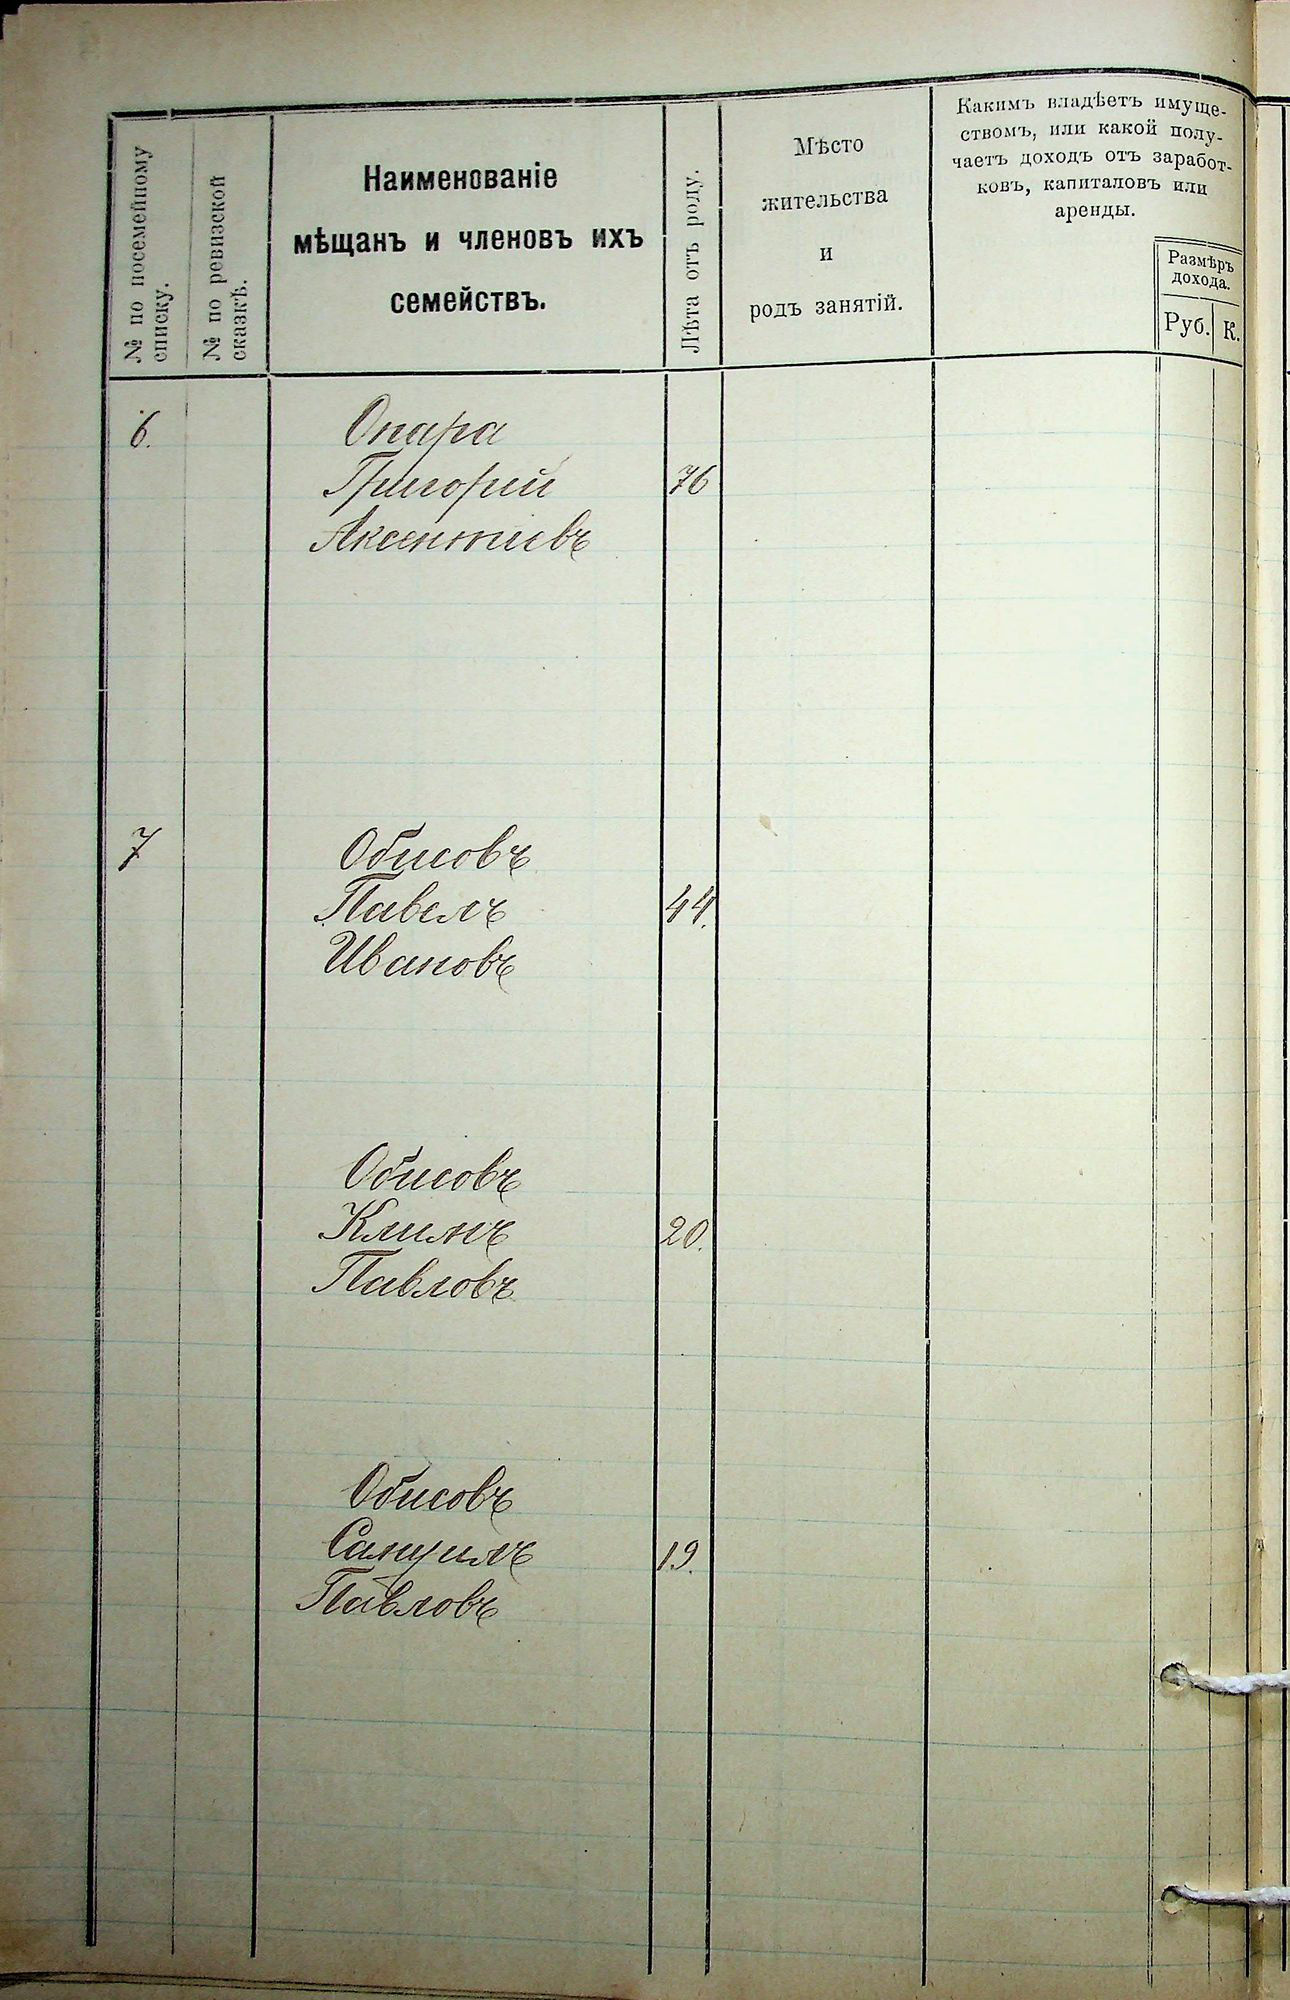 № по посемейному
списку.
№ по ревизской
сказкѣ.
Наименованіе
мѣщанъ и членовъ ихъ
семействъ.
Лѣта отъ роду.
Мѣсто
жительства
и
родъ занятій.
Какимъ владѣетъ имуще-
ствомъ, или какой полу-
чаетъ доходъ отъ заработ-
ковъ, капиталовъ или
аренды.
Размѣръ
дохода.
Руб. К.
6. Опара
Григорій 76
Аксентіевъ
7 Обисовъ
Павелъ 44.
Ивановъ
Обисовъ
Климъ 20.
Павловъ
Обисовъ
Самуилъ 19.
Павловъ